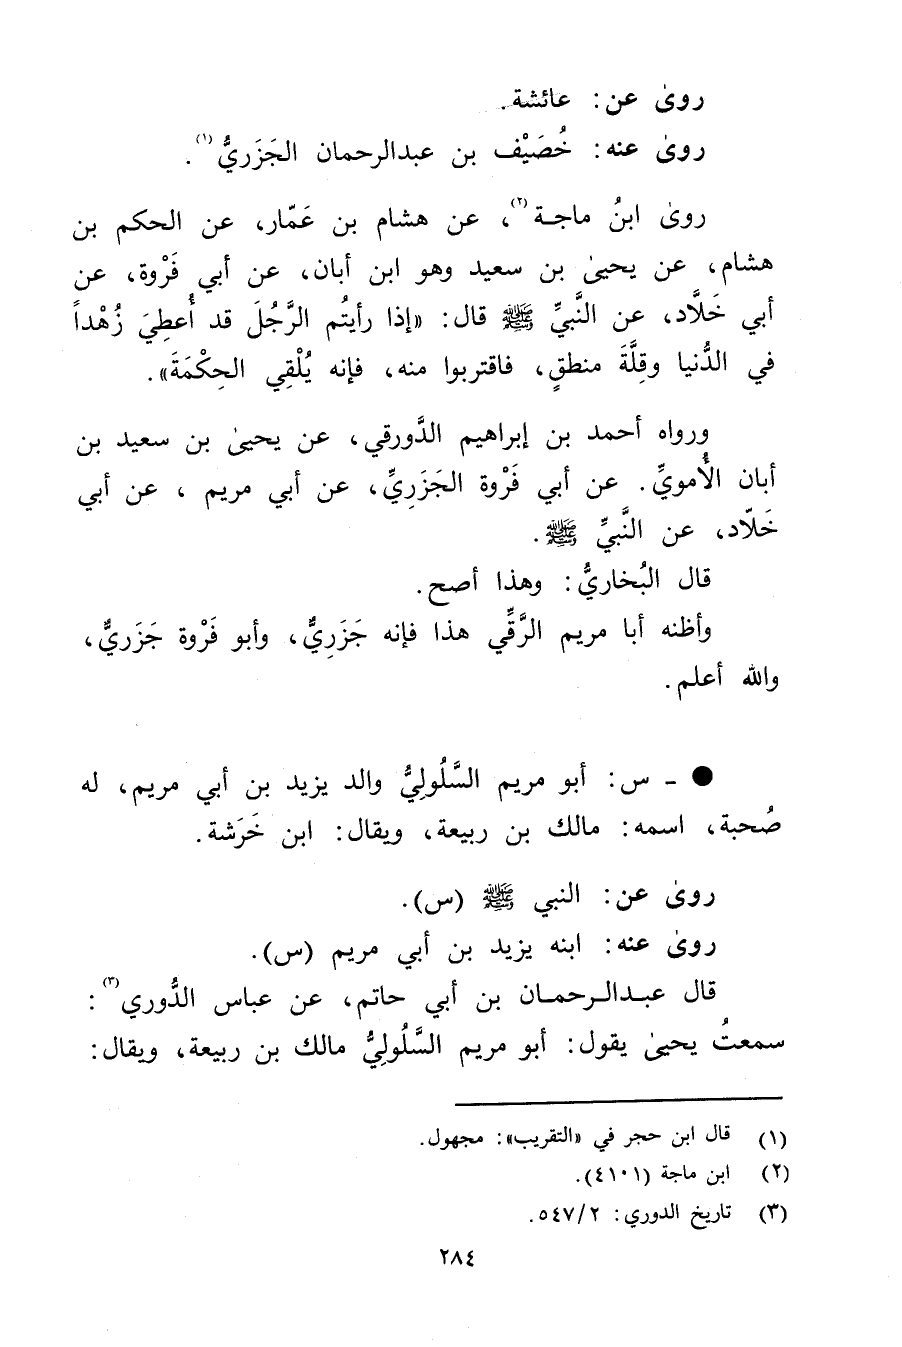 روىٰ عن: عائشة.
روىٰ عنه: خُصَيْف بن عبدالرحمان الجَزَريُّ(١).
روىٰ ابنُ ماجـة(٢)، عن هشام بن عَمّار، عن الحكم بن
هشام، عن يحيىٰ بن سعيد وهو ابن أبان، عن أبي فَرْوة، عن
أبي خَلَّاد، عن النَّبيِّ ﷺ قال: «إذا رأيتُم الرَّجُلَ قد أُعطِيَ زُهْداً
في الدُّنيا وقِلَّةَ منطقٍ، فاقتربوا منه، فإنه يُلْقِي الحِكْمَةَ».
ورواه أحمد بن إبراهيم الدَّورقي، عن يحيىٰ بن سعيد بن
أبان الأُمويِّ. عن أبي فَرْوة الجَزَرِيِّ، عن أبي مريم ، عن أبي
خَلّاد، عن النَّبيِّ ﷺ.
قال البُخاريُّ: وهذا أصح.
وأظنه أبا مريم الرَّقِّي هذا فإنه جَزَرِيٌّ، وأبو فَرْوة جَزَريٌّ،
والله أعلم.
● ـ س: أبو مريم السَّلُولِيُّ والد يزيد بن أبي مريم، له
صُحبة، اسمه: مالك بن ربيعة، ويقال: ابن خَرَشة.
روىٰ عن: النبي ﷺ (س).
روىٰ عنه: ابنه يزيد بن أبي مريم (س).
قال عبـدالـرحمـان بن أبي حاتم، عن عباس الدُّوري(٣):
سمعتُ يحيىٰ يقول: أبو مريم السَّلُوليُّ مالك بن ربيعة، ويقال:
(١) قال ابن حجر في «التقريب»: مجهول.
(٢) ابن ماجة (٤١٠١).
(٣) تاريخ الدوري: ٥٤٧/٢.
٢٨٤